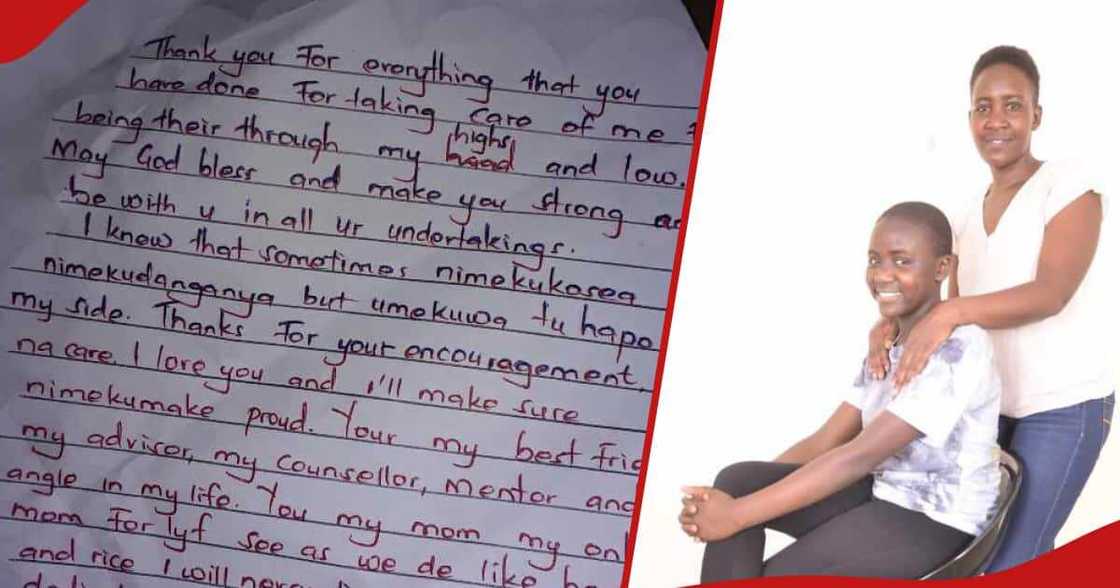 Thank you For everything that you
have done For taking care of me
being their through my highs and low.
May God bless and make you strong
be with u in all ur undertakings.
I know that sometimes nimekukosea
nimekudanganya but umekuwa tu hapo
my side. Thanks For your encouragement,
na care. I love you and I'll make sure
nimekumake proud. Your my best
my advisor, my counsellor, mentor and
angle in my life. You my mom my
mom For lyf see as we de like
and rice I will